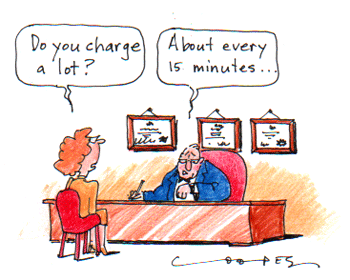 Do you charge
a lot?
About every
15 minutes...
COOPES